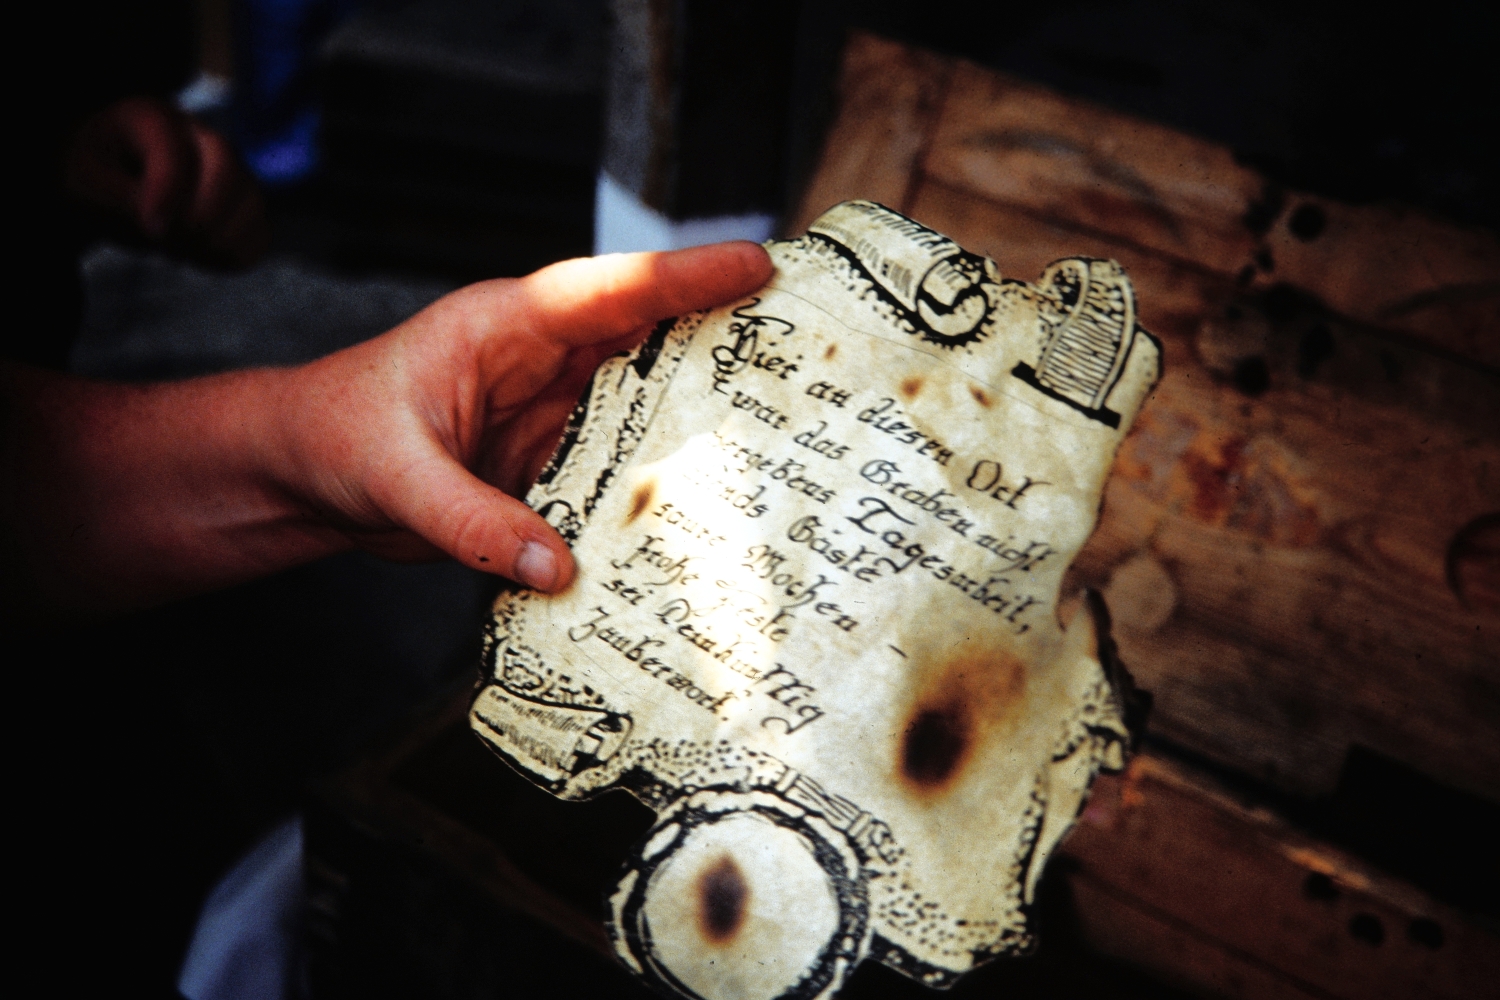 Hier an diesen Ort
war das Graben nicht
vergebens Tagesarbeit,
Abends Gäste
saure Wochen –
frohe Feste
sei Dein künfftig
Zauberwort.